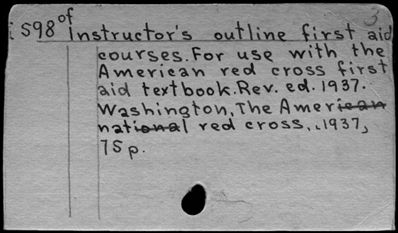 3
i S98 of Instructor's outline first aid
courses. For use with the
American red cross first
aid textbook. Rev. ed. 1937.
Washington, The American
national red cross, .1937,
75 p.